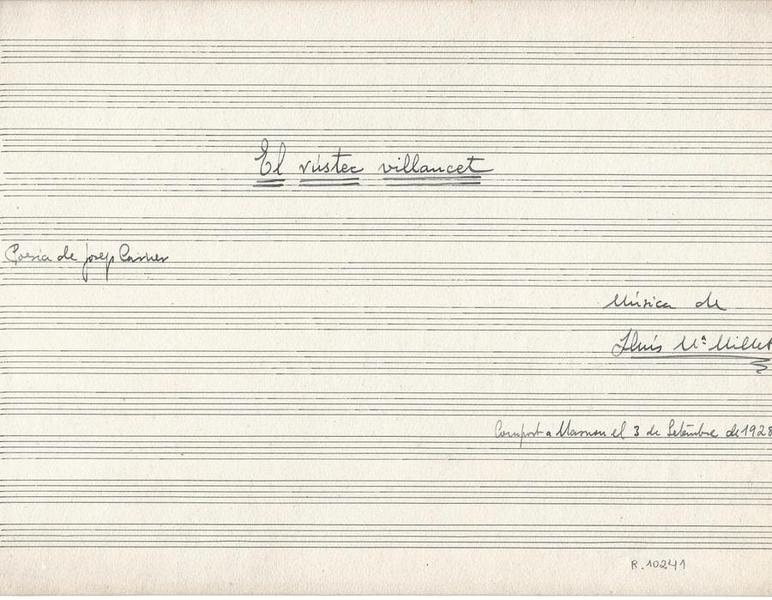 El rústec villancet
Poesia de Josep Carner
Música de
Lluís Mª Millet
Compost a Masnou el 3 de Setembre de 1928
R. 10241